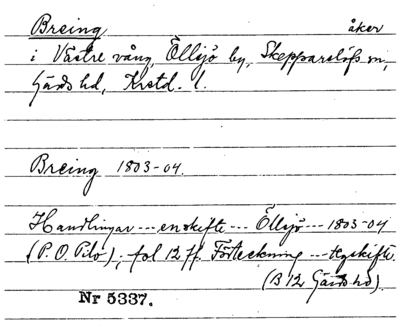 Breing åker
i Västre vång, Öllsjö by, Skepparslöfs sn,
Gärds hd, Krstd. l.
Breing 1803-04.
Handlingar --- enskifte --- Öllsjö --- 1803-04
(P. O. Pilo); fol 12 ff. Förteckning --- tegskifte
(B 12 Gärds hd).
Nr 5337.